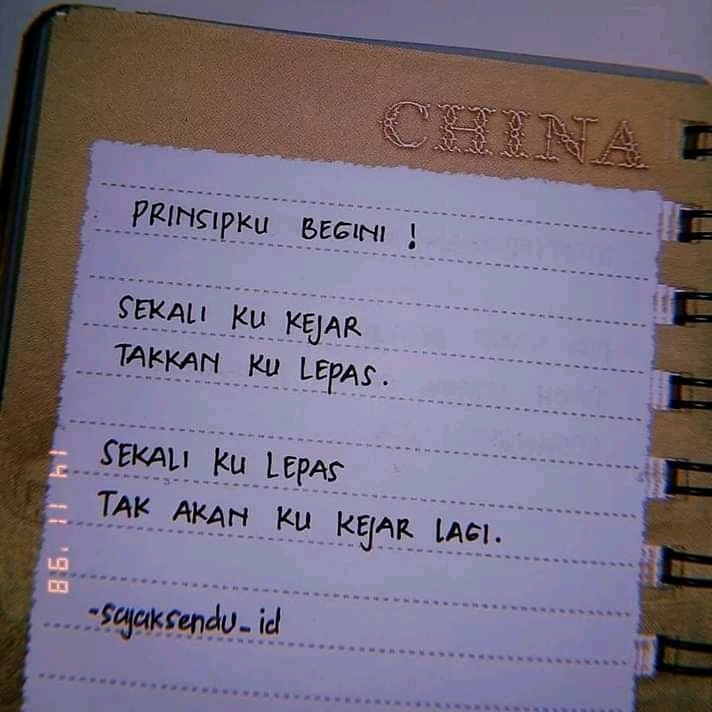 CHINA
PRINSIPKU BEGINI !
SEKALI KU KEJAR
TAKKAN KU LEPAS.
SEKALI KU LEPAS
TAK AKAN KU KEJAR LAGI.
-sajaksendu_id
14 11 '98